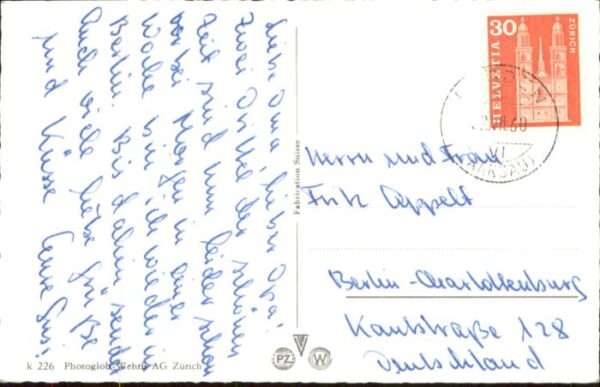 Liebe Oma, lieber Opa!
Zwei Drittel der schönen
Zeit sind nun leider schon
vorbei. Morgen in einer
Woche bin ich wieder in
Berlin. Bis dahin sende
Euch viele liebe Grüße
und Küsse Eure Susi
Fabrication Suisse
30
HELVETIA
ZÜRICH
60
(AARGAU)
Herrn und Frau
Fritz Appelt
Berlin-Charlottenburg
Kantstraße 128
Deutschland
k 226 Photoglob-Wehrli AG Zürich
PZ
W